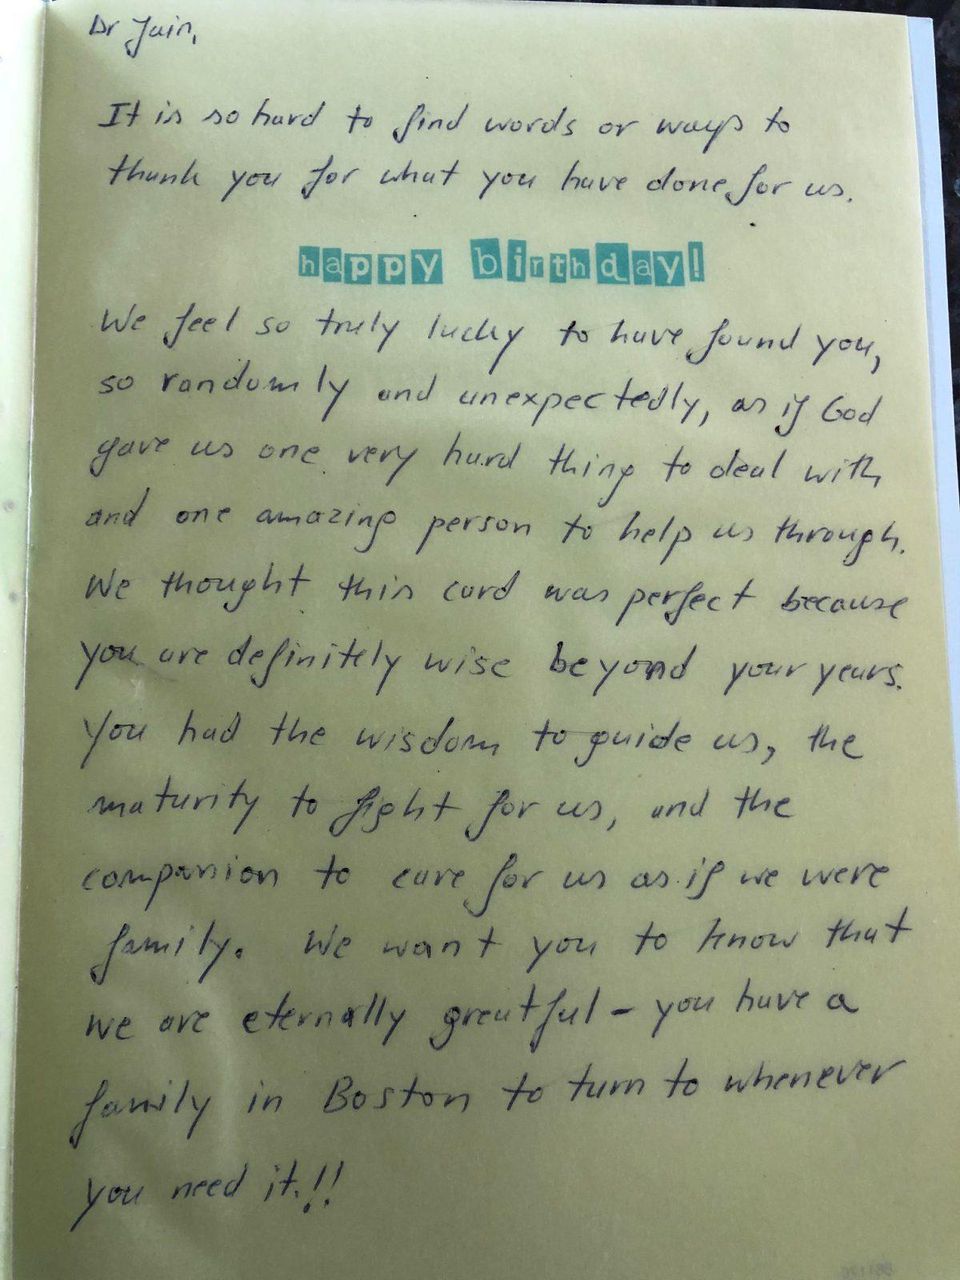 Dr Jain,
It is so hard to find words or ways to
thank you for what you have done for us.
happy birthday!
We feel so truly lucky to have found you,
so randomly and unexpectedly, as if God
gave us one very hard thing to deal with
and one amazing person to help us through.
We thought this card was perfect because
you are definitely wise beyond your years.
You had the wisdom to guide us, the
maturity to fight for us, and the
companion to care for us as if we were
family. We want you to know that
we are eternally greatful - you have a
family in Boston to turn to whenever
you need it.!!